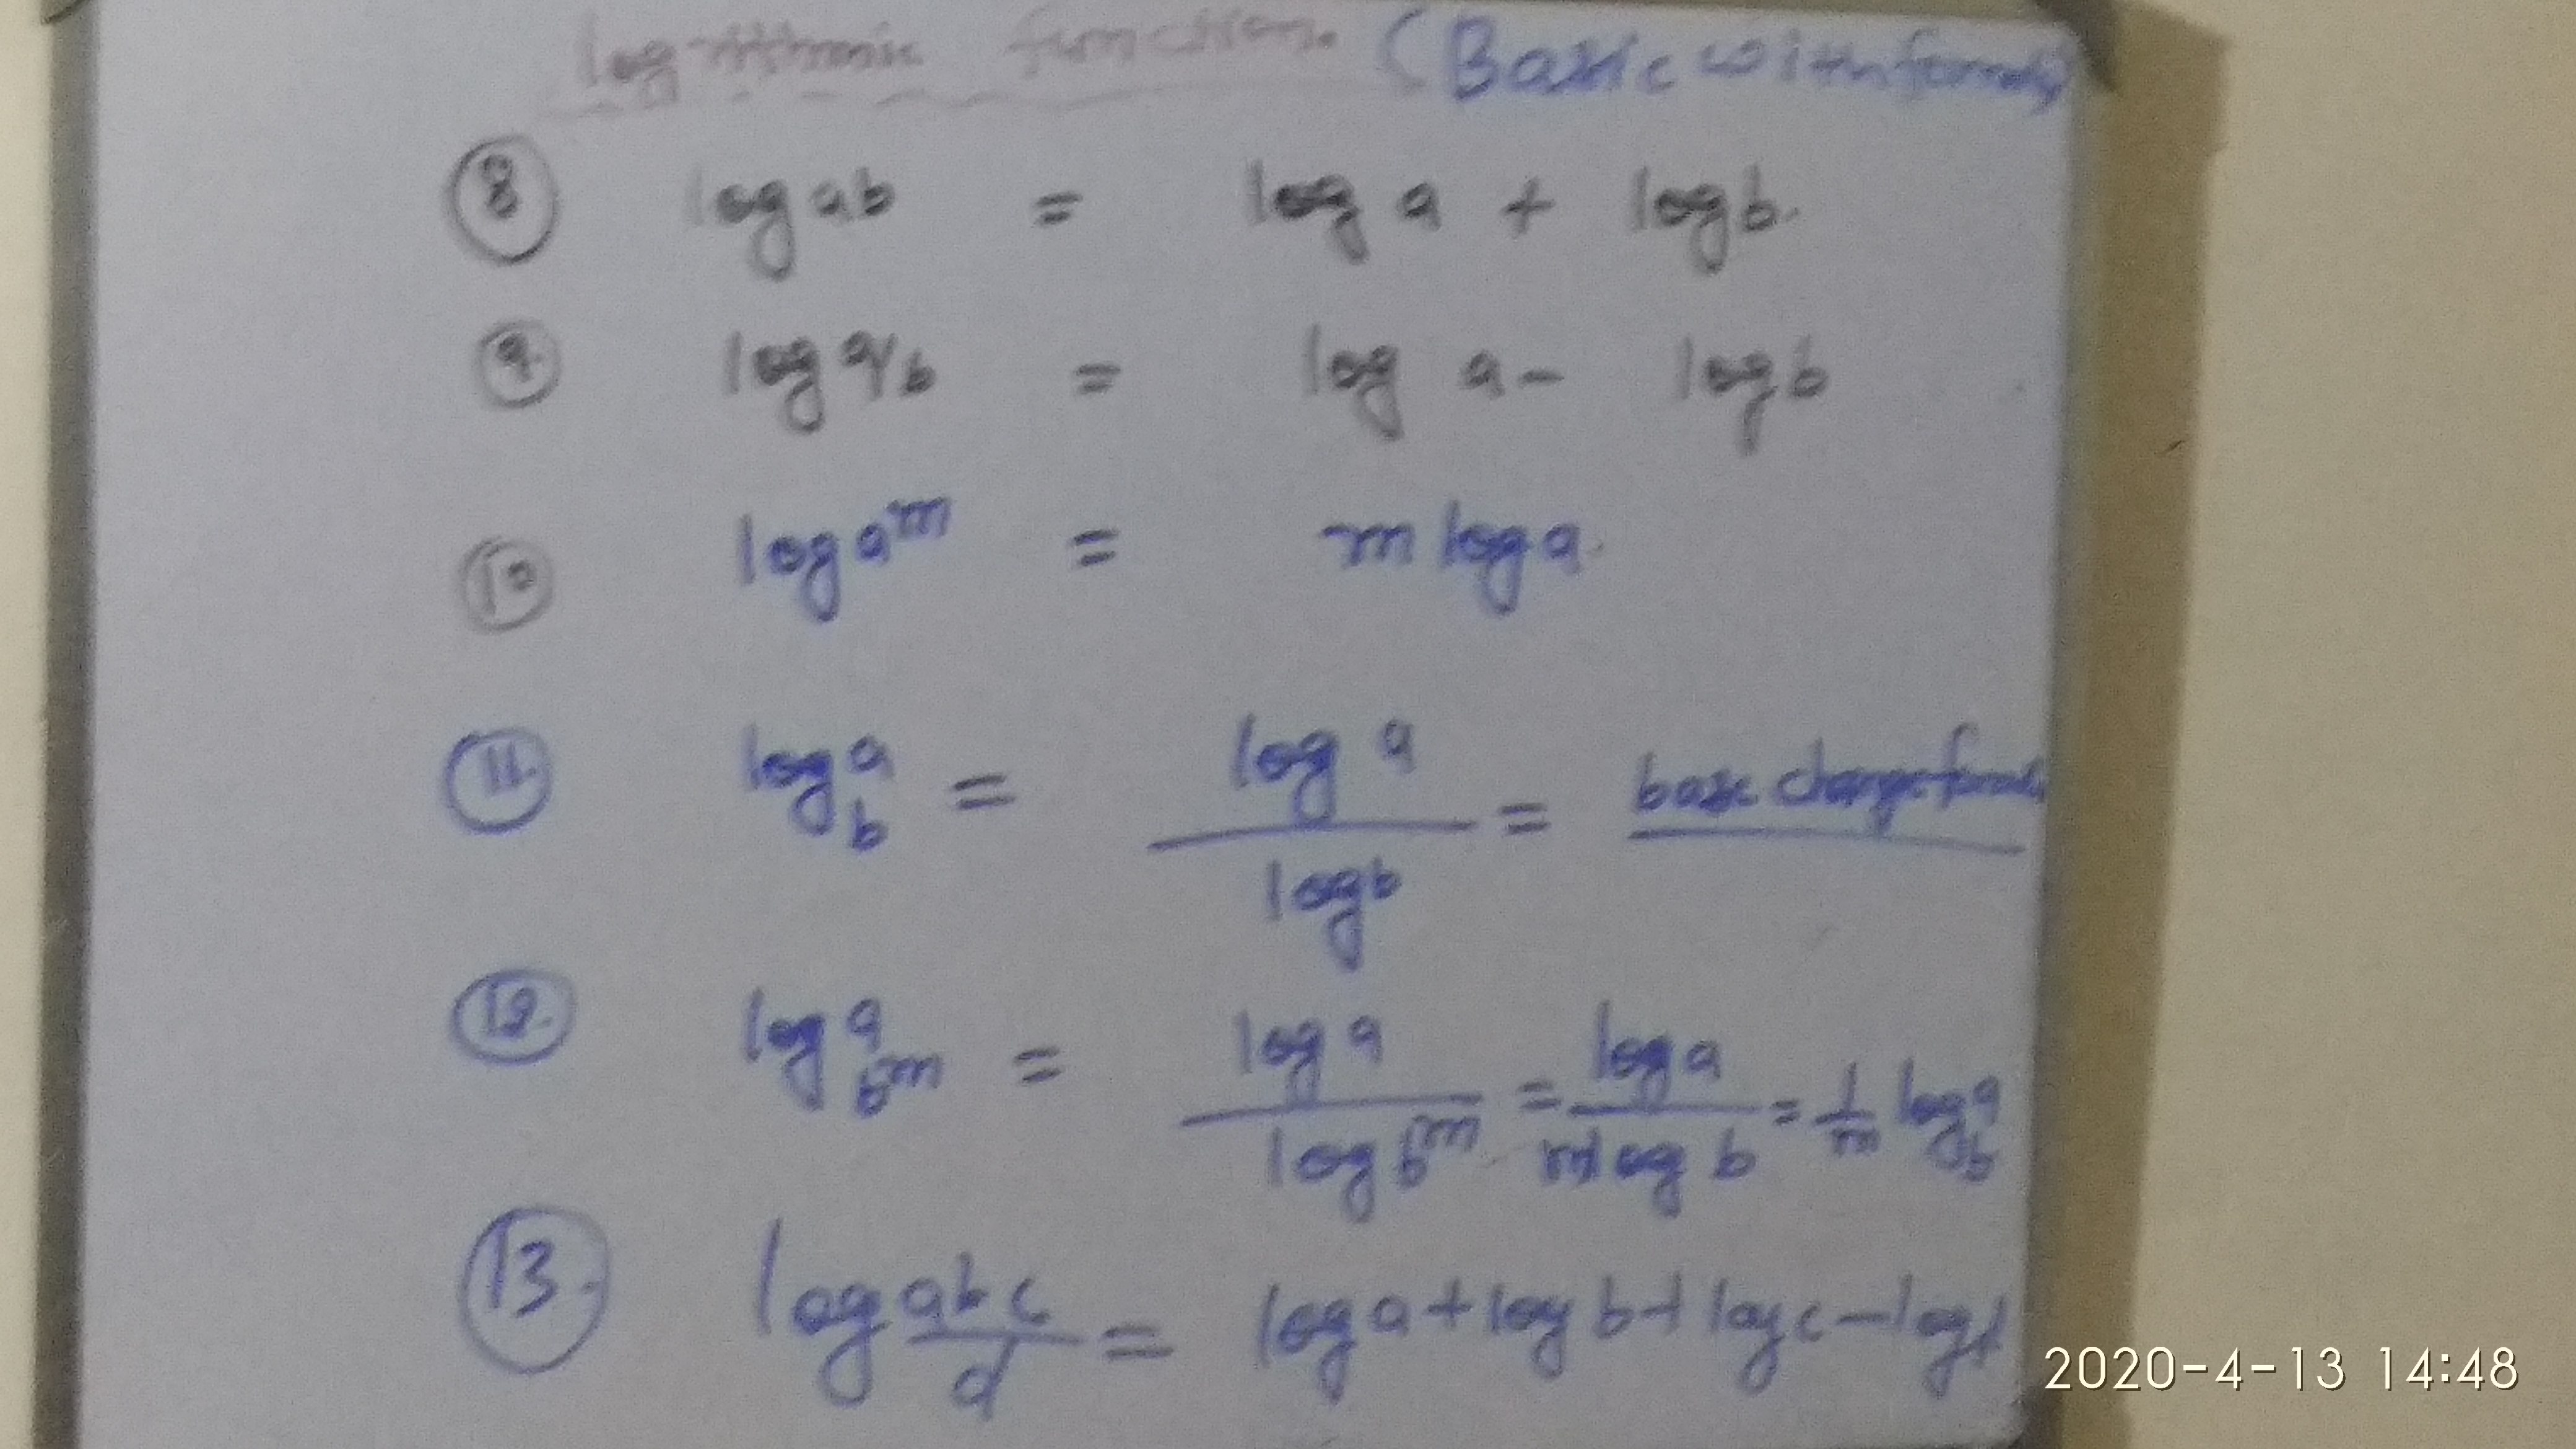 logrithmic function (Basic with formula)
⑧ log ab = log a + log b.
⑨ log a/b = log a - log b
⑩ log aᵐ = m log a.
⑪ log a b = log a / log b = base change formula
⑫ log a bᵐ = log a / log bᵐ = log a / m log b = 1/m log a b
⑬ log abc / d = log a + log b + log c - log d
2020-4-13 14:48